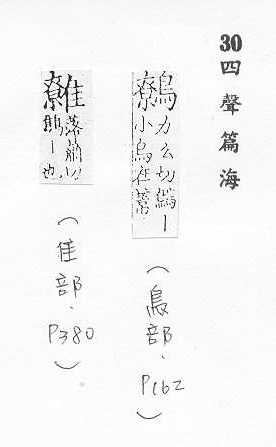 30四聲篇海
鷯力么切鷦—
小鳥在葦
（鳥部．P162）
落蕭切
—也
（隹部．P380）